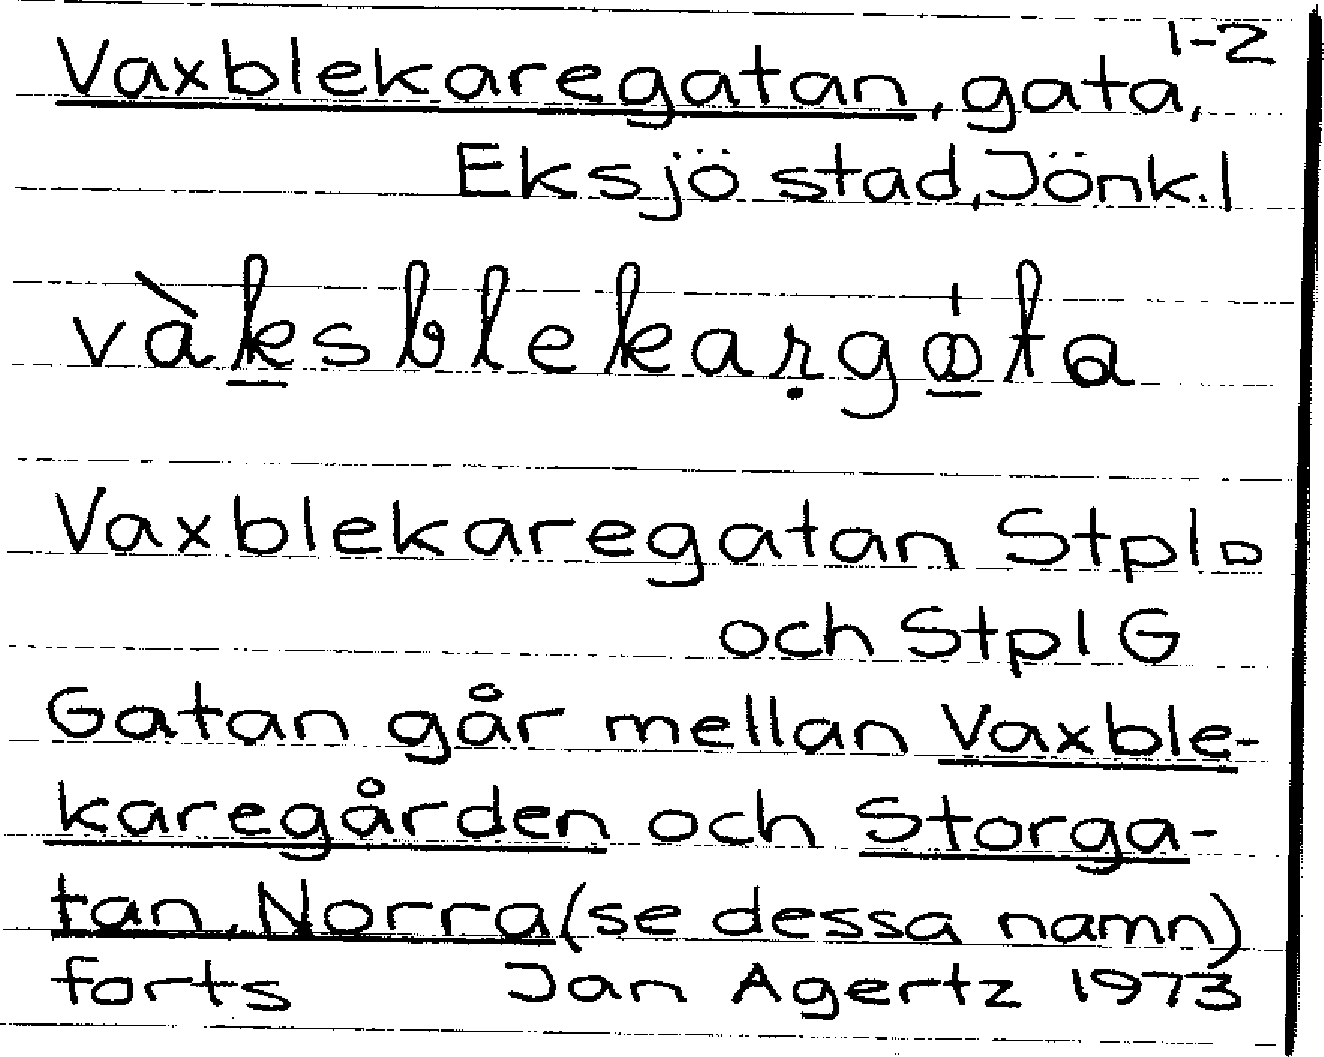 1-2
Vaxblekaregatan, gata,
Eksjö stad, Jönk. l
vàksblekargata
Vaxblekaregatan Stpl o
och Stpl G
Gatan går mellan Vaxble-
karegården och Storga-
tan, Norra (se dessa namn)
forts Jan Agertz 1973